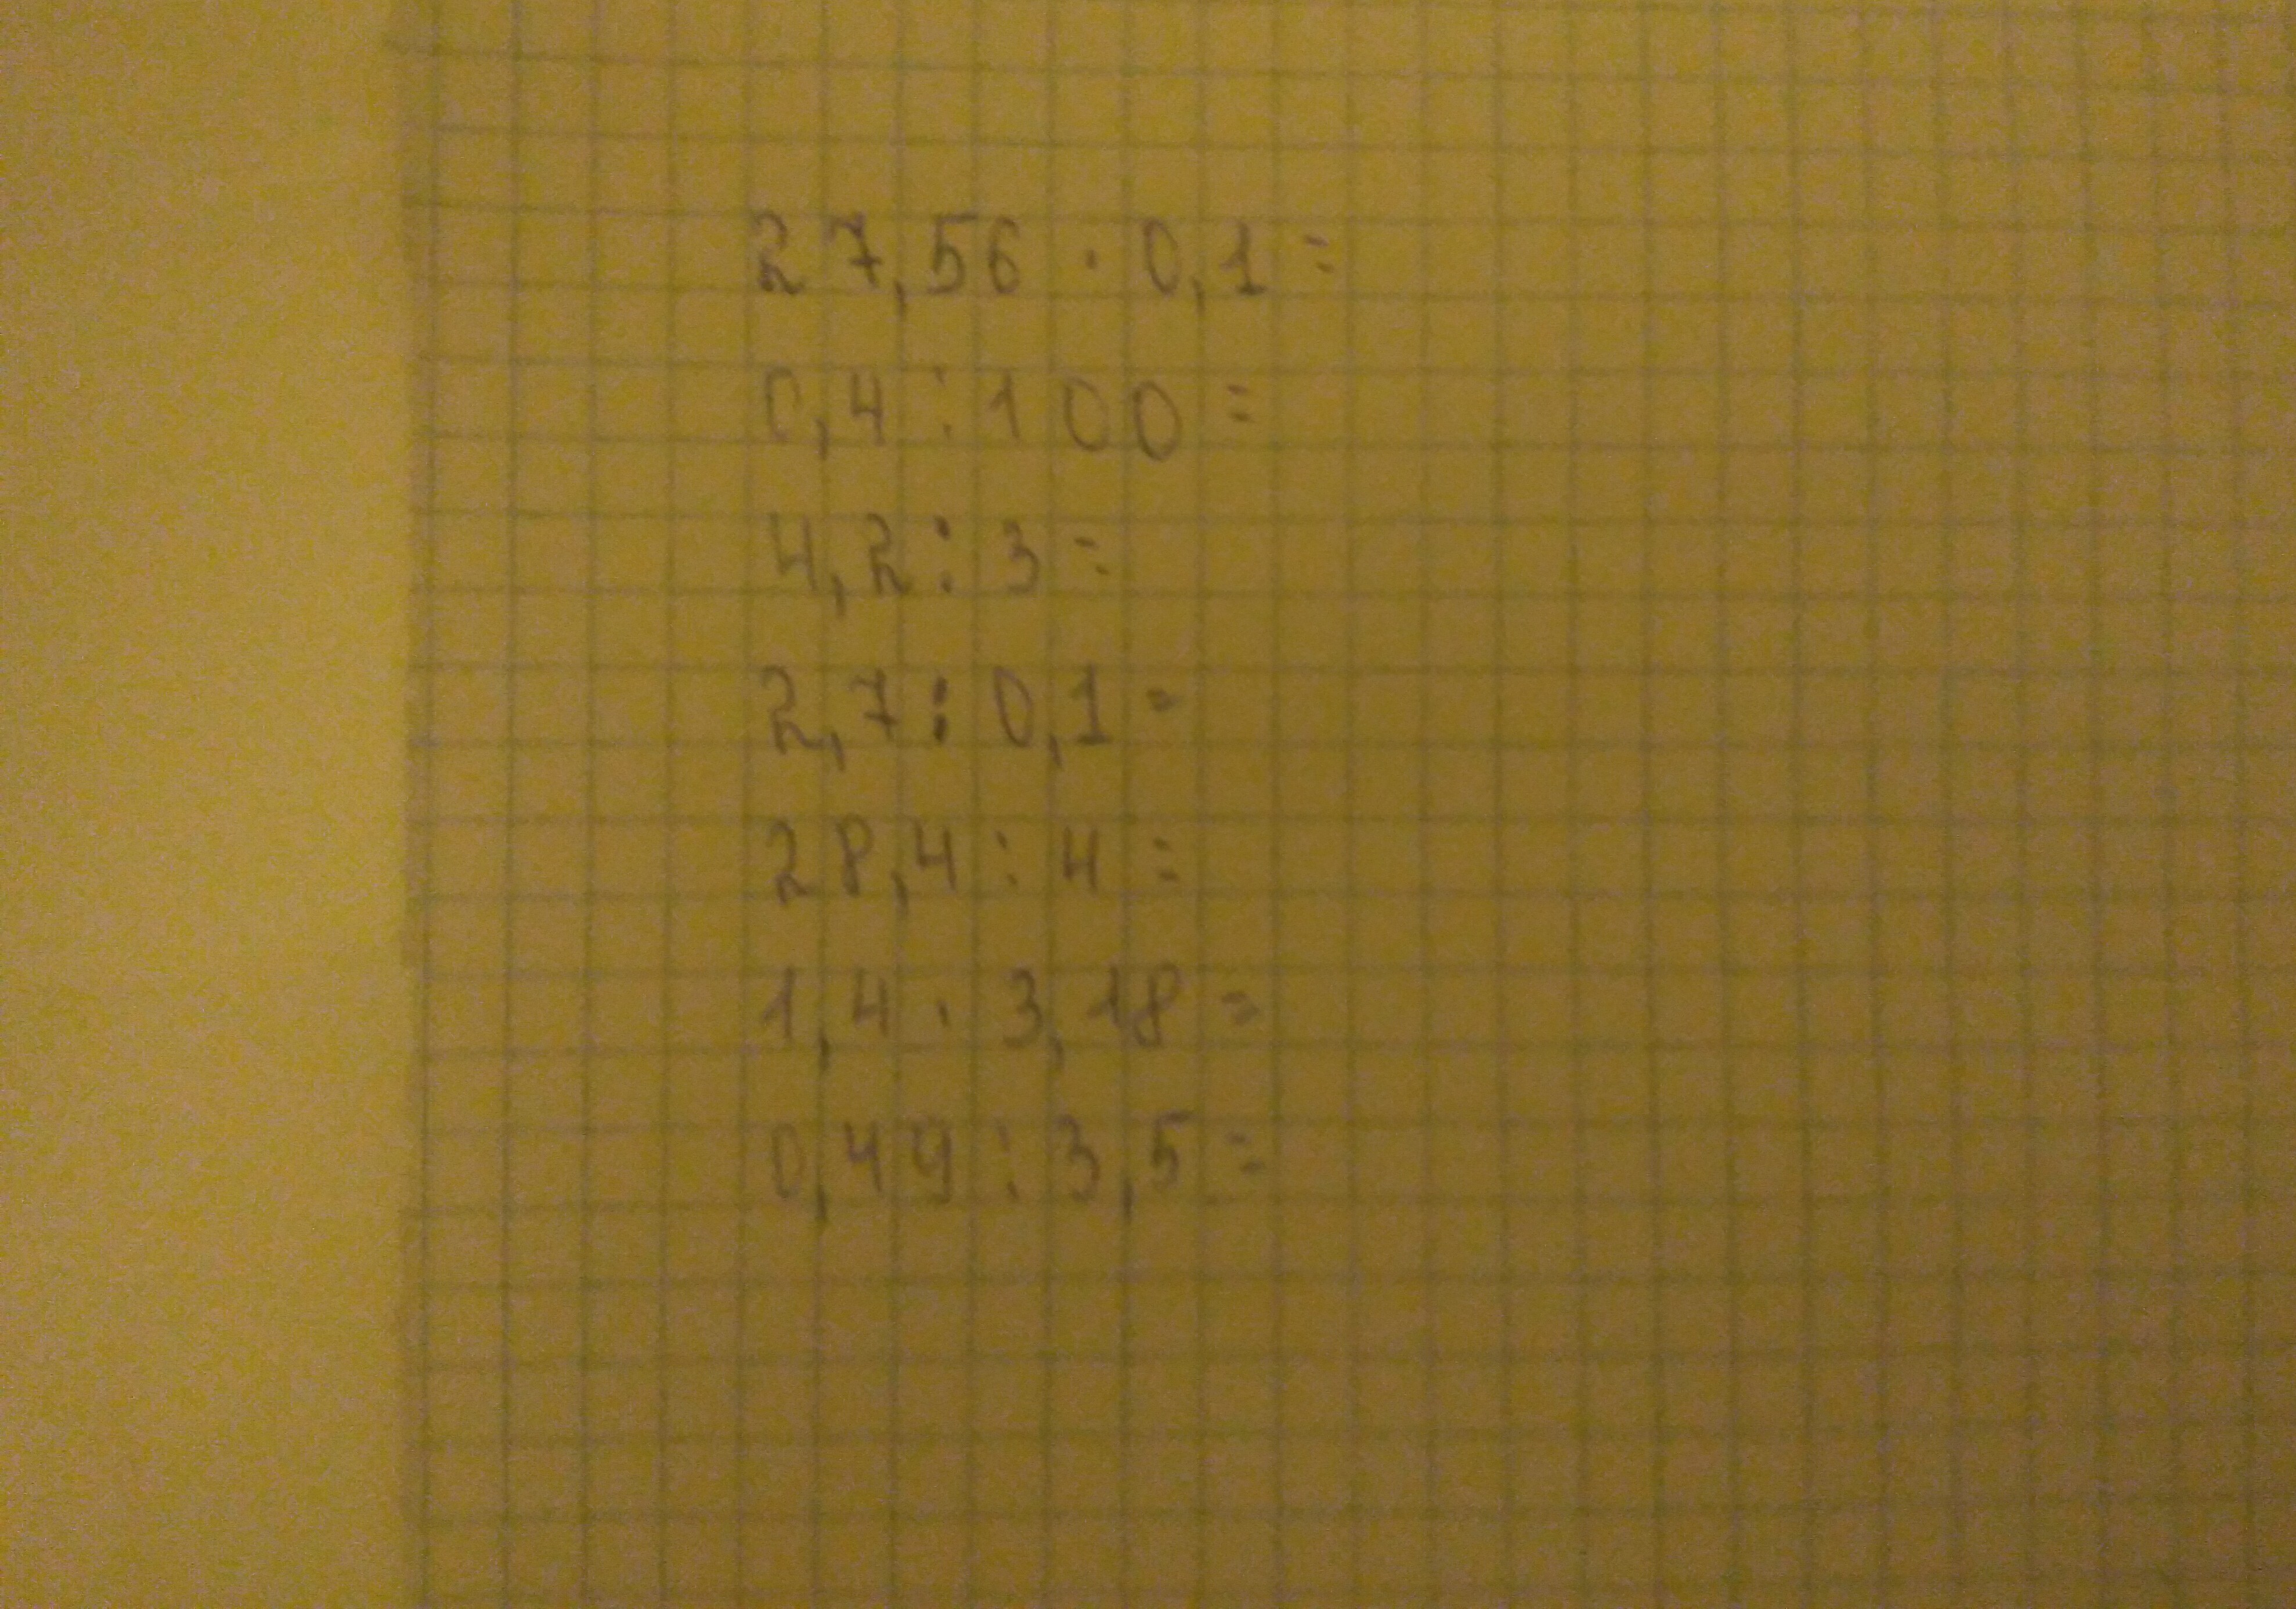 27,56 · 0,1 =
0,4 : 100 =
4,2 : 3 =
2,7 : 0,1 =
28,4 : 4 =
1,4 · 3,18 =
0,49 : 3,5 =